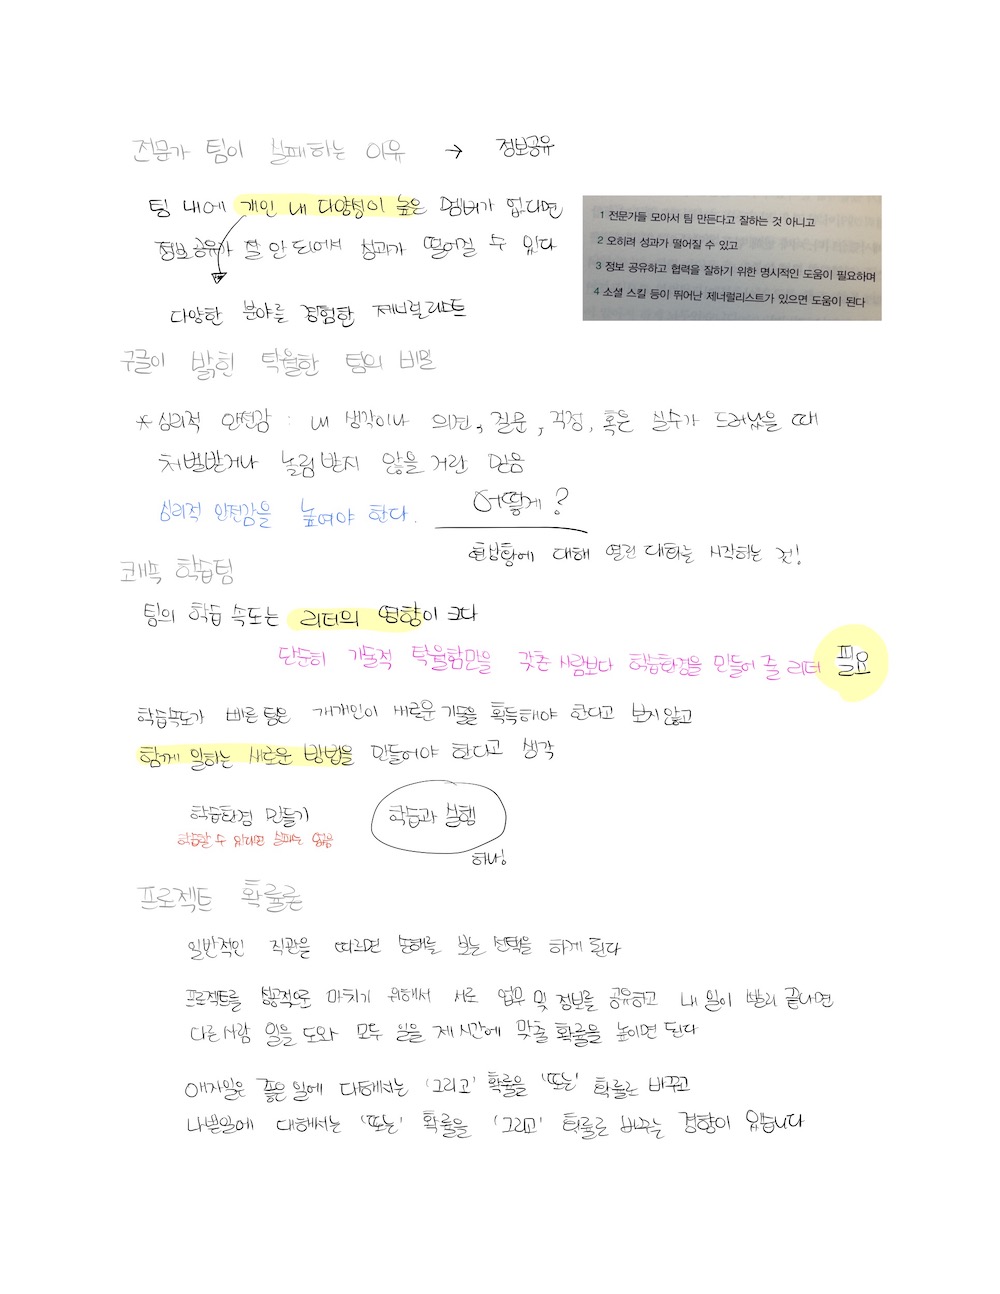 전문가 팀이 실패하는 이유 → 정보공유
팀 내에 개인 내 다양성이 높은 멤버가 없다면
정보공유가 잘 안되어서 성과가 떨어질 수 있다
다양한 분야를 경험한 제너럴리스트
1 전문가들 모아서 팀 만든다고 잘하는 것 아니고
2 오히려 성과가 떨어질 수 있고
3 정보 공유하고 협력을 잘하기 위한 명시적인 도움이 필요하며
4 소셜 스킬 등이 뛰어난 제너럴리스트가 있으면 도움이 된다
구글이 밝힌 탁월한 팀의 비밀
* 심리적 안전감 : 내 생각이나 의견, 질문, 걱정, 혹은 실수가 드러났을 때
처벌받거나 놀림받지 않을 거란 믿음
심리적 안전감을 높여야 한다.
어떻게?
현상황에 대해 열린 대화를 시작하는 것!
쾌속 학습팀
팀의 학습 속도는 리더의 영향이 크다
단순히 기술적 탁월함만을 갖춘 사람보다 학습환경을 만들어 줄 리더 필요
학습속도가 빠른 팀은 개개인이 새로운 기술을 획득해야 한다고 보지 않고
함께 일하는 새로운 방법을 만들어야 한다고 생각
학습환경 만들기
학습할 수 있다면 실패는 없음
학습과 실행
하나!
프로젝트 확률론
일반적인 직관을 따르면 손해를 보는 선택을 하게 된다
프로젝트를 성공적으로 마치기 위해서 서로 업무 및 정보를 공유하고 내 일이 빨리 끝나면
다른 사람 일을 도와 모두 일을 제 시간에 맞출 확률을 높이면 된다
애자일은 좋은 일에 대해서는 '그리고' 확률을 '또는' 확률로 바꾸고
나쁜일에 대해서는 '또는' 확률을 '그리고' 확률로 바꾸는 경향이 있습니다